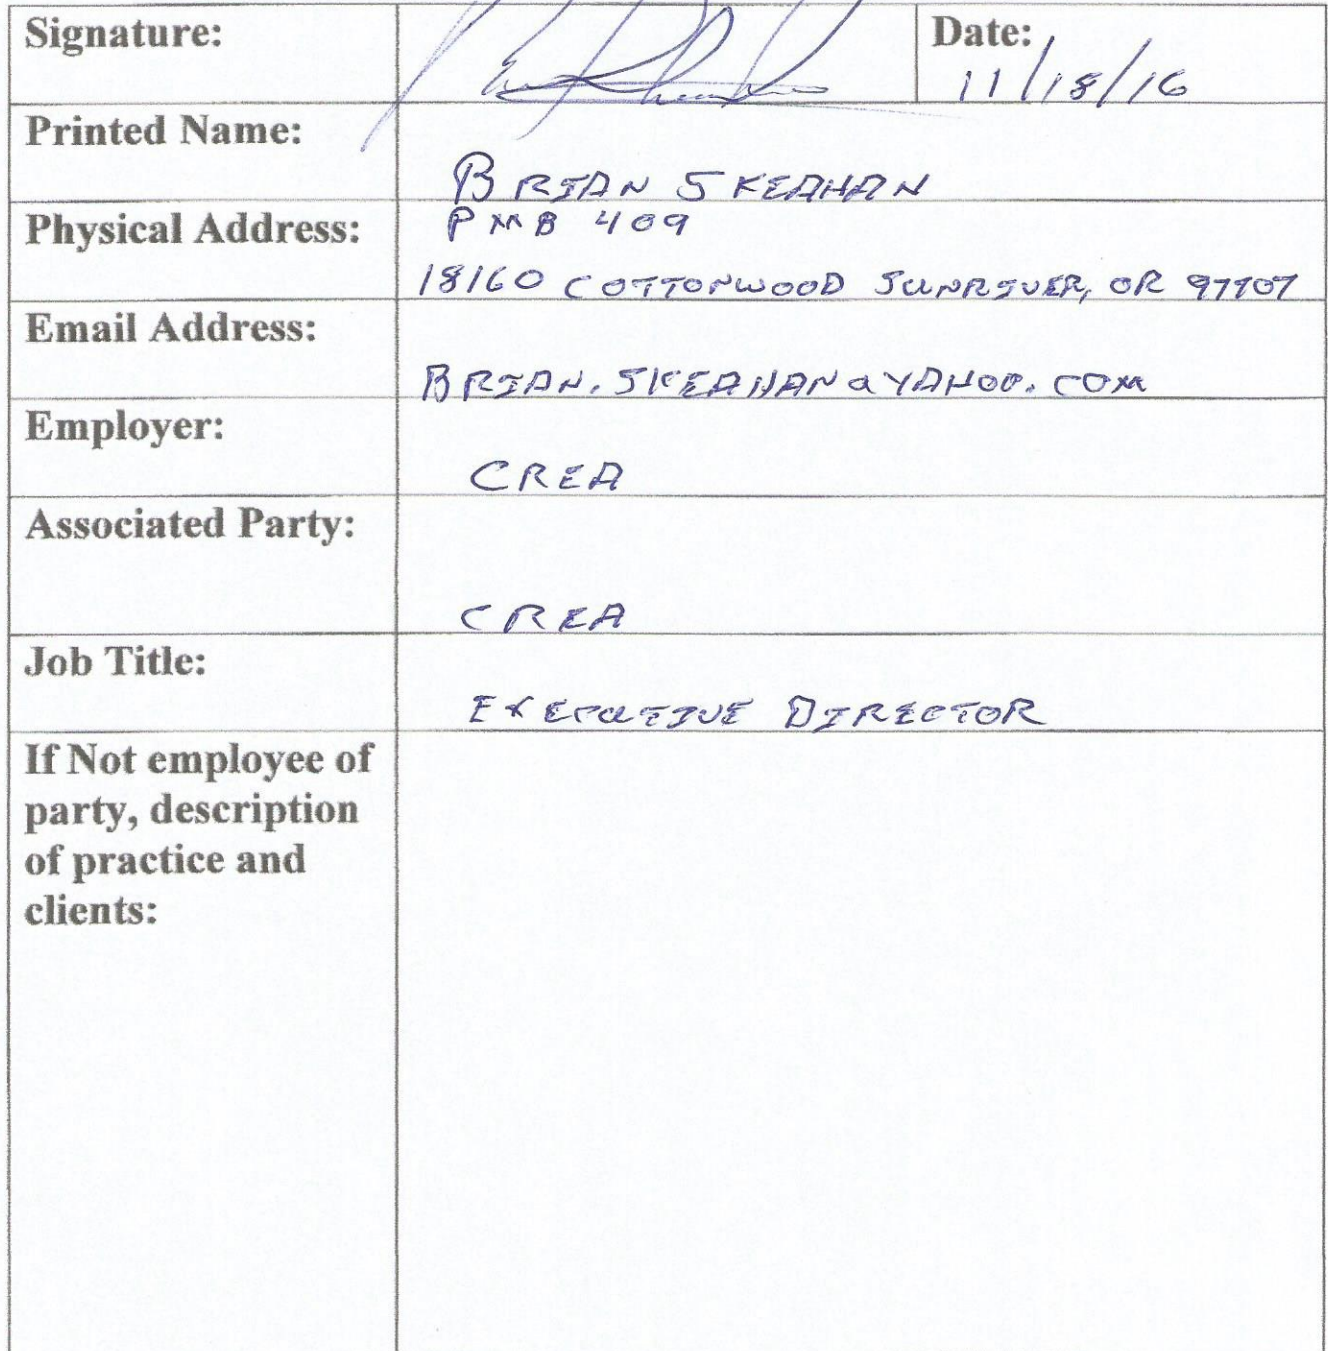 Signature:
Date:
11/18/16
Printed Name:
BRIAN SKEAHAN
Physical Address:
PMB 409
18160 COTTONWOOD SUNRIVER, OR 97707
Email Address:
BRIAN.SKEAHAN@YAHOO.COM
Employer:
CREA
Associated Party:
CREA
Job Title:
EXECUTIVE DIRECTOR
If Not employee of
party, description
of practice and
clients: